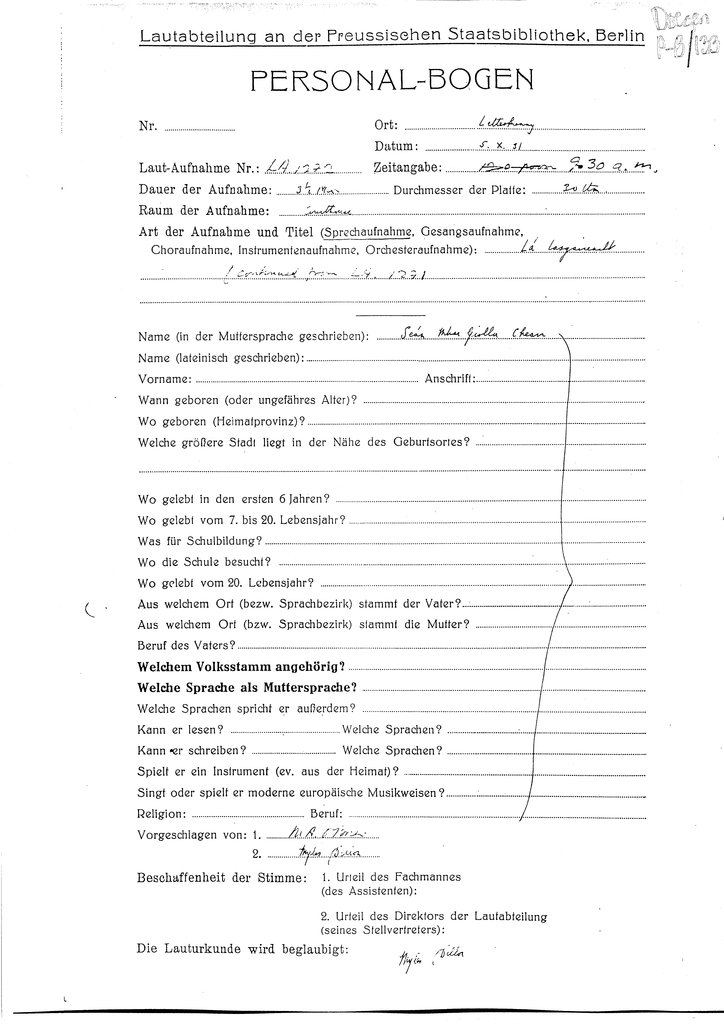 Doegen
P-B/133
Lautabteilung an der Preussischen Staatsbibliothek, Berlin
PERSONAL-BOGEN
Nr.
Ort: Letterkenny
Datum: 5. X. 31
Laut-Aufnahme Nr.: LA 1272 Zeitangabe: 9.30 a.m.
Dauer der Aufnahme: Durchmesser der Platte: 20
Raum der Aufnahme: Courthouse
Art der Aufnahme und Titel (Sprechaufnahme, Gesangsaufnahme,
Choraufnahme, Instrumentenaufnahme, Orchesteraufnahme): Lá
(continued from LA. 1271
Name (in der Muttersprache geschrieben): Seán Mhac Giolla Chearr
Name (lateinisch geschrieben):
Vorname: Anschrift:
Wann geboren (oder ungefähres Alter)?
Wo geboren (Heimatprovinz)?
Welche größere Stadt liegt in der Nähe des Geburtsortes?
Wo gelebt in den ersten 6 Jahren?
Wo gelebt vom 7. bis 20. Lebensjahr?
Was für Schulbildung?
Wo die Schule besucht?
Wo gelebt vom 20. Lebensjahr?
Aus welchem Ort (bezw. Sprachbezirk) stammt der Vater?
Aus welchem Ort (bzw. Sprachbezirk) stammt die Mutter?
Beruf des Vaters?
Welchem Volksstamm angehörig?
Welche Sprache als Muttersprache?
Welche Sprachen spricht er außerdem?
Kann er lesen? Welche Sprachen?
Kann er schreiben? Welche Sprachen?
Spielt er ein Instrument (ev. aus der Heimat)?
Singt oder spielt er moderne europäische Musikweisen?
Religion: Beruf:
Vorgeschlagen von: 1. M. A. O'Brien
2. Myles Dillon
Beschaffenheit der Stimme: 1. Urteil des Fachmannes
(des Assistenten):
2. Urteil des Direktors der Lautabteilung
(seines Stellvertreters):
Die Lauturkunde wird beglaubigt: Myles Dillon